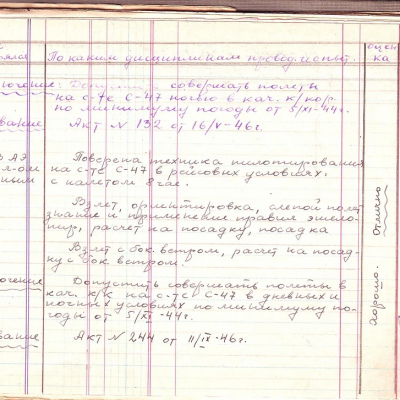 оцен
По каким дисциплинам провед. испыт.
ка
ючение: Допустить совершать полеты
на с-те С-47 ночью в кач. к/кор.
по минимуму погоды от 5/XI-44г.
вание Акт N 132 от 16/V-46г.
Поверена техника пилотирования
на с-те С-47 в рейсовых условиях:
с налетом 8 час.
Взлет, ориентировка, слепой полет
знание и применение правил эшело-
нир, расчет на посадку, посадка
Взлет с бок ветром, расчет на посад-
ку с бок ветром.
Хорошо. Отлично
ючение Допустить совершать полеты в
кач. к/к на с-те С-47 в дневных и
ночных условиях по минимуму по-
годы от 5/XI-44г.
вание Акт N 244 от 11/IX-46г.